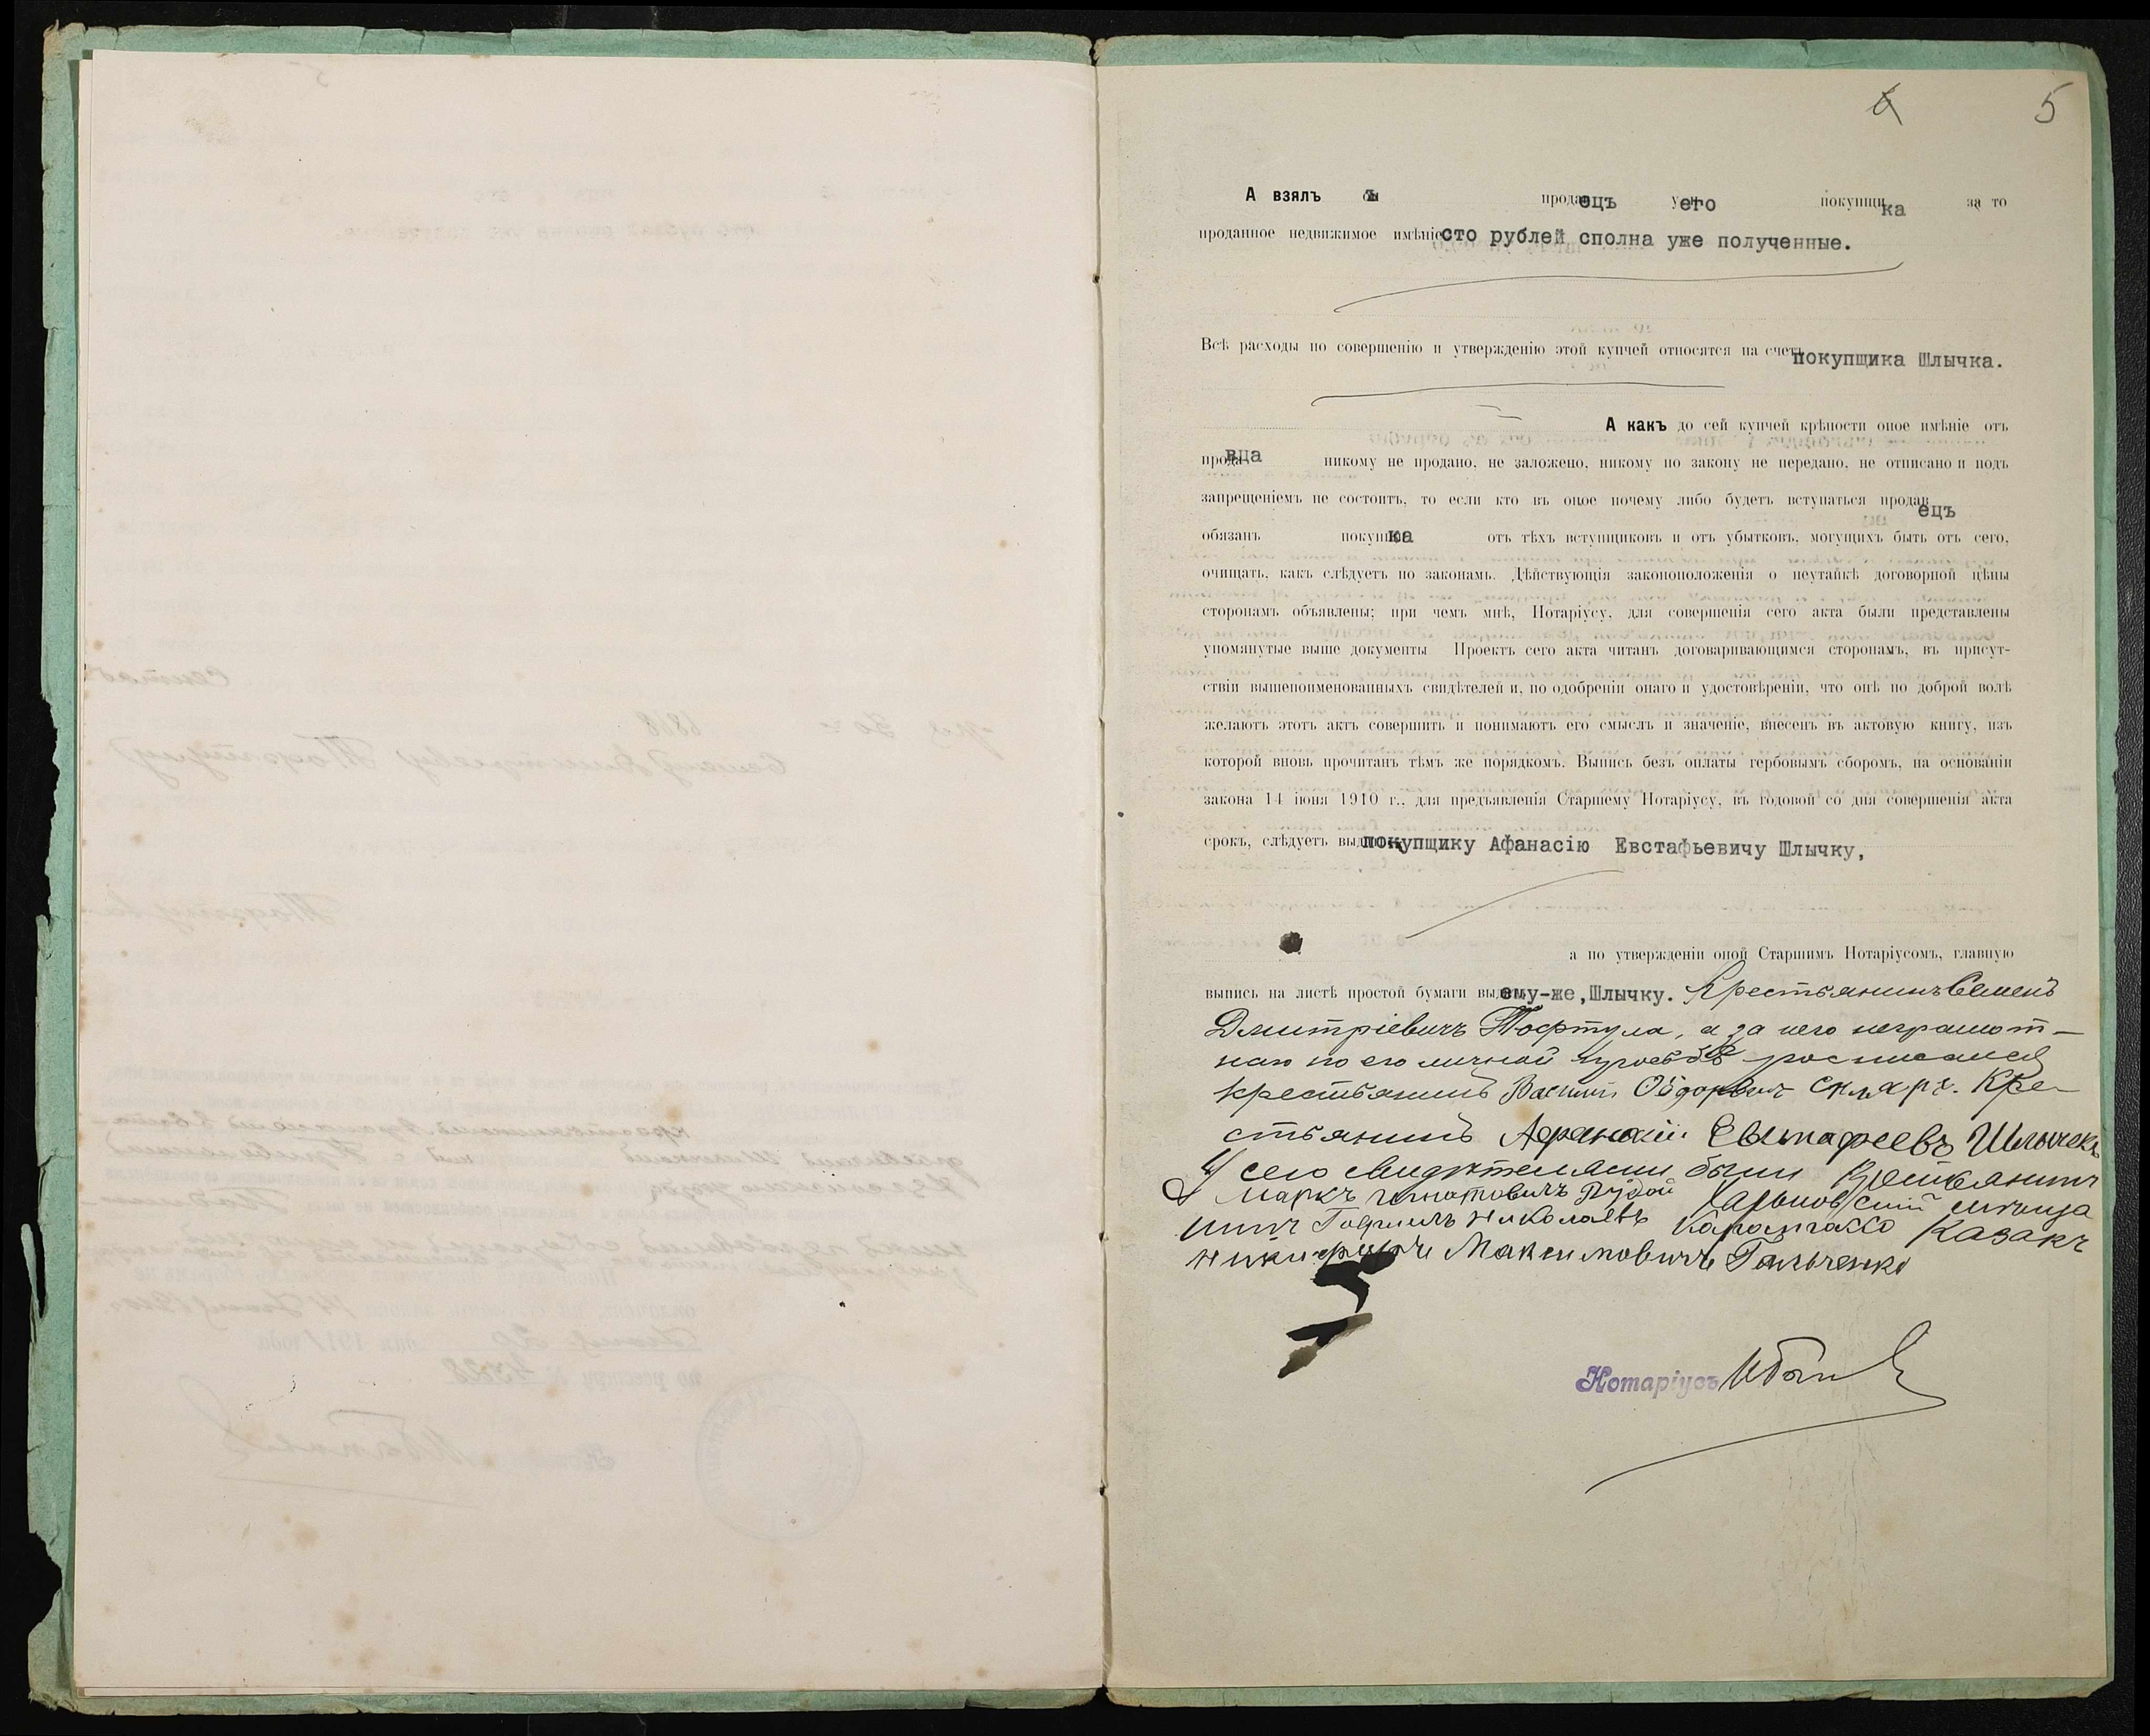 5
А взялъ продавецъ у него покупщика за то
проданное недвижимое имѣніе сто рублей сполна уже полученные.
Всѣ расходы по совершенію и утвержденію этой купчей относятся на счетъ покупщика Шлычка.
А какъ до сей купчей крѣпости оное имѣніе отъ
продавца никому не продано, не заложено, никому по закону не передано, не отписано и подъ
запрещеніемъ не состоитъ, то если кто въ оное почему либо будетъ вступаться продавецъ
обязанъ покупщика отъ тѣхъ вступщиковъ и отъ убытковъ, могущихъ быть отъ сего,
очищать, какъ слѣдуетъ по законамъ. Дѣйствующія законоположенія о неутайкѣ договорной цѣны
сторонамъ объявлены; при чемъ мнѣ, Нотаріусу, для совершенія сего акта были представлены
упомянутые выше документы Проектъ сего акта читанъ договаривающимся сторонамъ, въ присут-
ствіи вышепоименованныхъ свидѣтелей и, по одобреніи онаго и удостовѣреніи, что онѣ по доброй волѣ
желаютъ этотъ актъ совершить и понимаютъ его смыслъ и значеніе, внесенъ въ актовую книгу, изъ
которой вновь прочитанъ тѣмъ же порядкомъ. Выпись безъ оплаты гербовымъ сборомъ, на основаніи
закона 14 іюня 1910 г., для предъявленія Старшему Нотаріусу, въ годовой со дня совершенія акта
срокъ, слѣдуетъ выдать покупщику Афанасію Евстафьевичу Шлычку,
а по утвержденіи оной Старшимъ Нотаріусомъ, главную
выпись на листѣ простой бумаги выдать ему-же, Шлычку. Крестьянинъ Семенъ
Дмитріевичъ Тофтула, а за него неграмот-
наго по его личной просьбѣ росписался
крестьянинъ Василій Ѳёдоровичъ Скляръ. Кре-
стьянинъ Афанасій Евстафеевъ Шлычекъ
У сего свидѣтелями были Крестьянинъ
Маркъ Игнатовичъ Рудой Харьковскій мѣща
нинъ Гавріилъ Николаевъ Казакъ
Никифоръ Максимовичъ Гальченко
Нотаріусъ